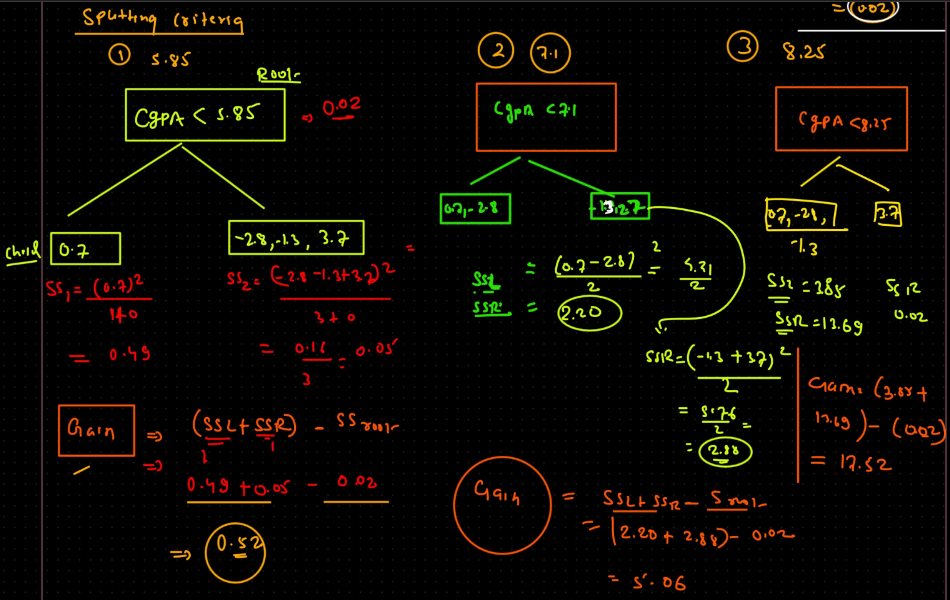 Splitting criteria
① 5.85
Root
CgpA < 5.85
⇒ 0.02
Child
0.7
-2.8, -1.3, 3.7
SS₁ = (0.7)²
1+0
= 0.49
SS₂ = (-2.8 -1.3+3.7)²
3+0
= 0.16
3
= 0.05
=
Gain
⇒ (SSL + SSR) - SS root
⇒
0.49 + 0.05 - 0.02
⇒ 0.52
② 7.1
CgpA < 7.1
0.7, -2.8
-1.3, 2.7
SSL = (0.7 - 2.8)² = 4.31
2 2
SSR = 2.20
SSR = (-1.3 + 3.7)²
2
= 5.76 =
2
= 2.88
Gain = SSL + SSR - Sroot
= (2.20 + 2.88) - 0.02
= 5.06
= (0.02)
③ 8.25
CgpA < 8.25
0.7, -2.8,
-1.3
3.7
SSL = 3.85
SSR = 13.69
SSR
0.02
Gain = (3.85 +
13.69) - (0.02)
= 17.52